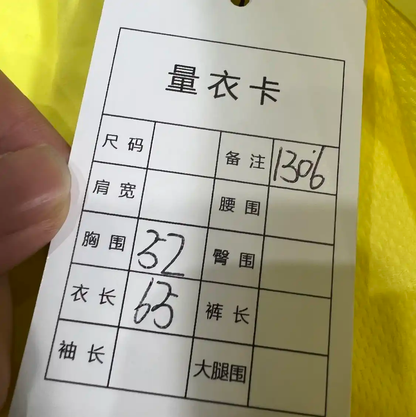 量衣卡
尺码 备注 1306
肩宽 腰围
胸围 52 臀围
衣长 65 裤长
袖长 大腿围